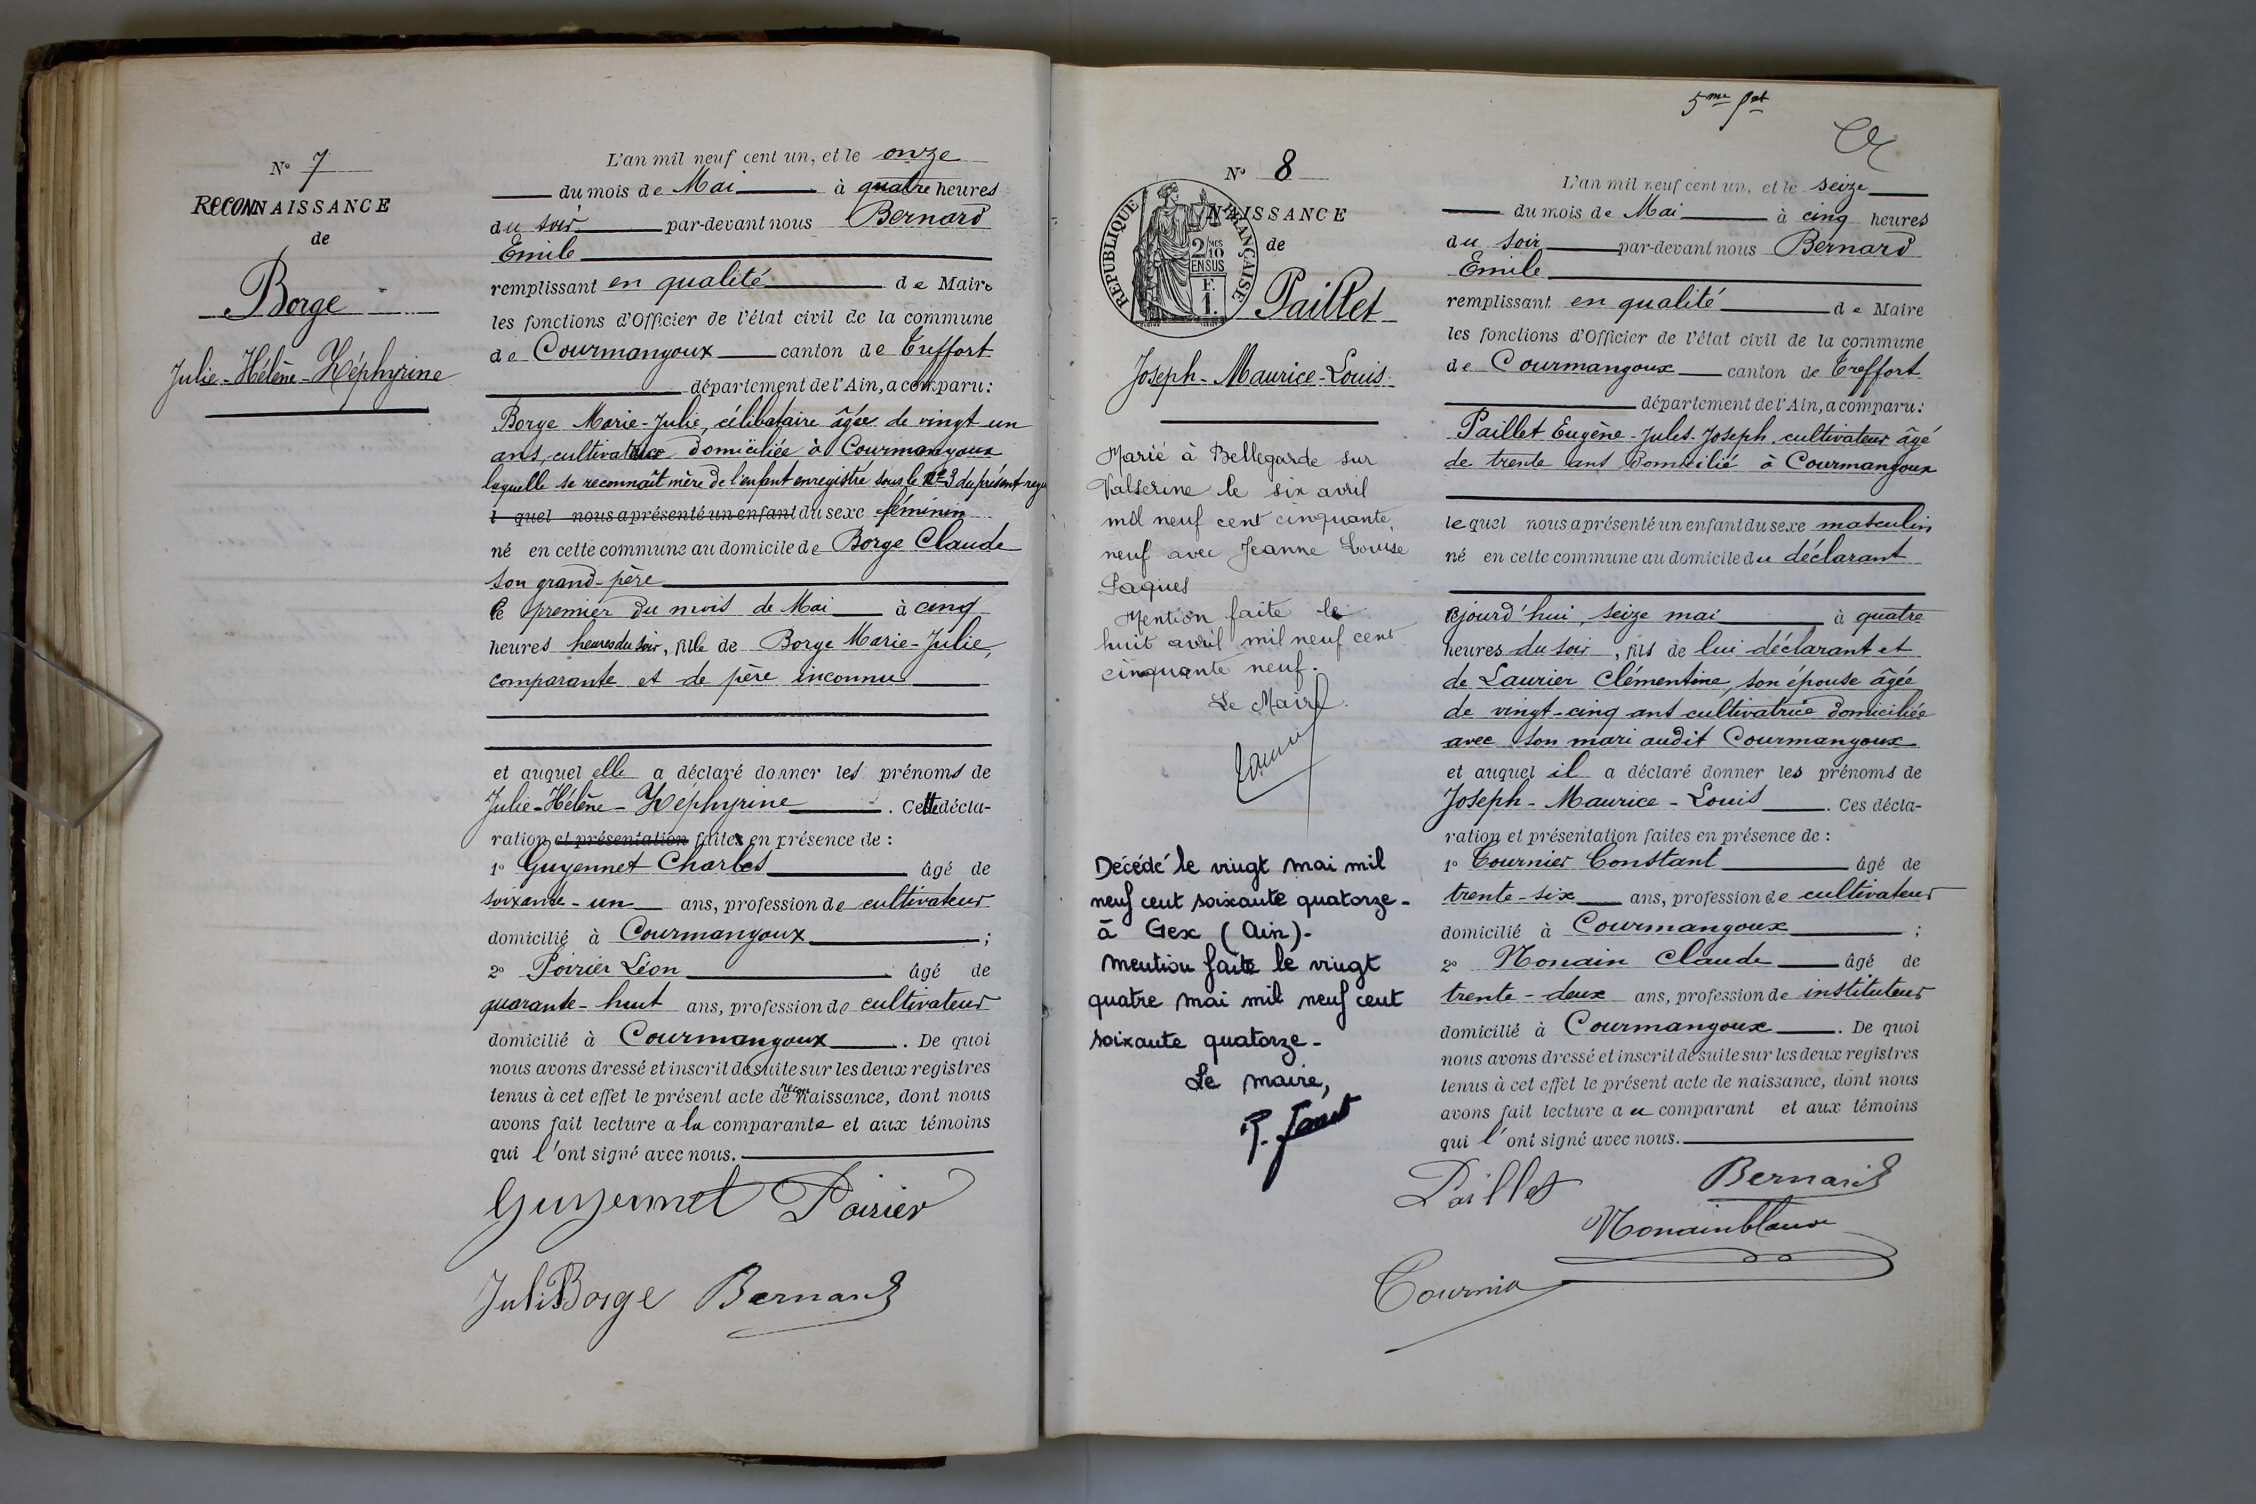 N° 7
RECONNAISSANCE
de
Borge
Julie-Hélène-Zéphyrine
L'an mil neuf cent un, et le onze
du mois de Mai à quatre heures
du soir par-devant nous Bernard
Emile
remplissant en qualité de Maire
les fonctions d'Officier de l'état civil de la commune
de Courmangoux canton de Treffort
département de l'Ain, a comparu :
Borge Marie-Julie, célibataire âgée de vingt un
ans, cultivatrice domiciliée à Courmangoux
laquelle se reconnaît mère de l'enfant enregistré sous le n° 3 du présent
l quel nous a présenté un enfant du sexe féminin
né en cette commune au domicile de Borge Claude
son grand-père
le premier du mois de Mai à cinq
heures heures du soir, fille de Borge Marie-Julie,
comparante et de père inconnu
et auquel elle a déclaré donner les prénoms de
Julie-Hélène-Zéphyrine. Cette décla-
ration et présentation faite en présence de :
1° Guyennet Charles âgé de
soixante-un ans, profession de cultivateur
domicilié à Courmangoux ;
2° Poirier Léon âgé de
quarante-huit ans, profession de cultivateur
domicilié à Courmangoux. De quoi
nous avons dressé et inscrit de suite sur les deux registres
tenus à cet effet le présent acte de reconnaissance, dont nous
avons fait lecture a la comparante et aux témoins
qui l'ont signé avec nous.
Guyennet Poirier
Juli Borge Bernard
5me
N° 8
NAISSANCE
de
RÉPUBLIQUE FRANÇAISE
2/10 MES
EN SUS
F.
1.
Paillet
Joseph-Maurice-Louis
Marié à Bellegarde sur
Valserine le six avril
mil neuf cent cinquante,
neuf avec Jeanne Louise
Mention faite le
huit avril mil neuf cent
cinquante neuf.
Le Maire.
Décédé le vingt mai mil
neuf cent soixante quatorze -
à Gex (Ain) -
mention faite le vingt
quatre mai mil neuf cent
soixante quatorze -
Le maire,
L'an mil neuf cent un, et le seize
du mois de Mai à cinq heures
du soir par-devant nous Bernard
Emile
remplissant en qualité de Maire
les fonctions d'Officier de l'état civil de la commune
de Courmangoux canton de Treffort
département de l'Ain, a comparu :
Paillet Eugène-Jules-Joseph, cultivateur âgé
de trente ans domicilié à Courmangoux
lequel nous a présenté un enfant du sexe masculin
né en cette commune au domicile du déclarant
ajourd'hui, seize mai à quatre
heures du soir, fils de lui déclarant et
de Laurier Clémentine, son épouse âgée
de vingt-cinq ans cultivatrice domiciliée
avec son mari audit Courmangoux
et auquel il a déclaré donner les prénoms de
Joseph-Maurice-Louis. Ces décla-
ration et présentation faites en présence de :
1° Tournier Constant âgé de
trente-six ans, profession de cultivateur
domicilié à Courmangoux ;
2° Monain Claude âgé de
trente-deux ans, profession de instituteur
domicilié à Courmangoux. De quoi
nous avons dressé et inscrit de suite sur les deux registres
tenus à cet effet le présent acte de naissance, dont nous
avons fait lecture au comparant et aux témoins
qui l'ont signé avec nous.
Paillet Bernard
Tournier